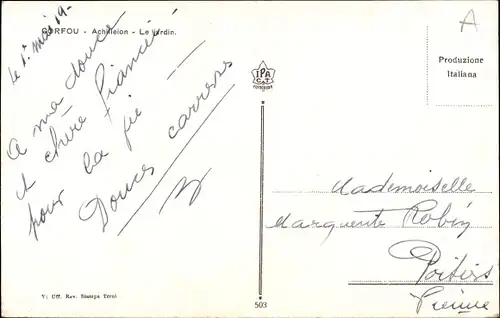 CORFOU - Achilleion - Le Jardin.
le 1r mai 19-
A ma douce
et chère fiancée
pour la vie
Douces caresses
IPA
CT
A
Produzione
Italiana
Mademoiselle
Marguerite Robin
Poitiers
Vienne
V: Uff. Rev. Stampa Terni
503